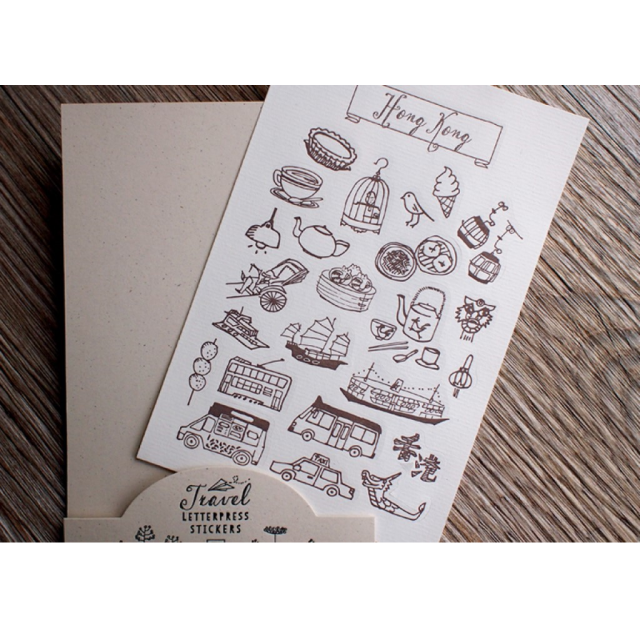 Hong Kong
TAXI
香港
Travel
LETTERPRESS
STICKERS